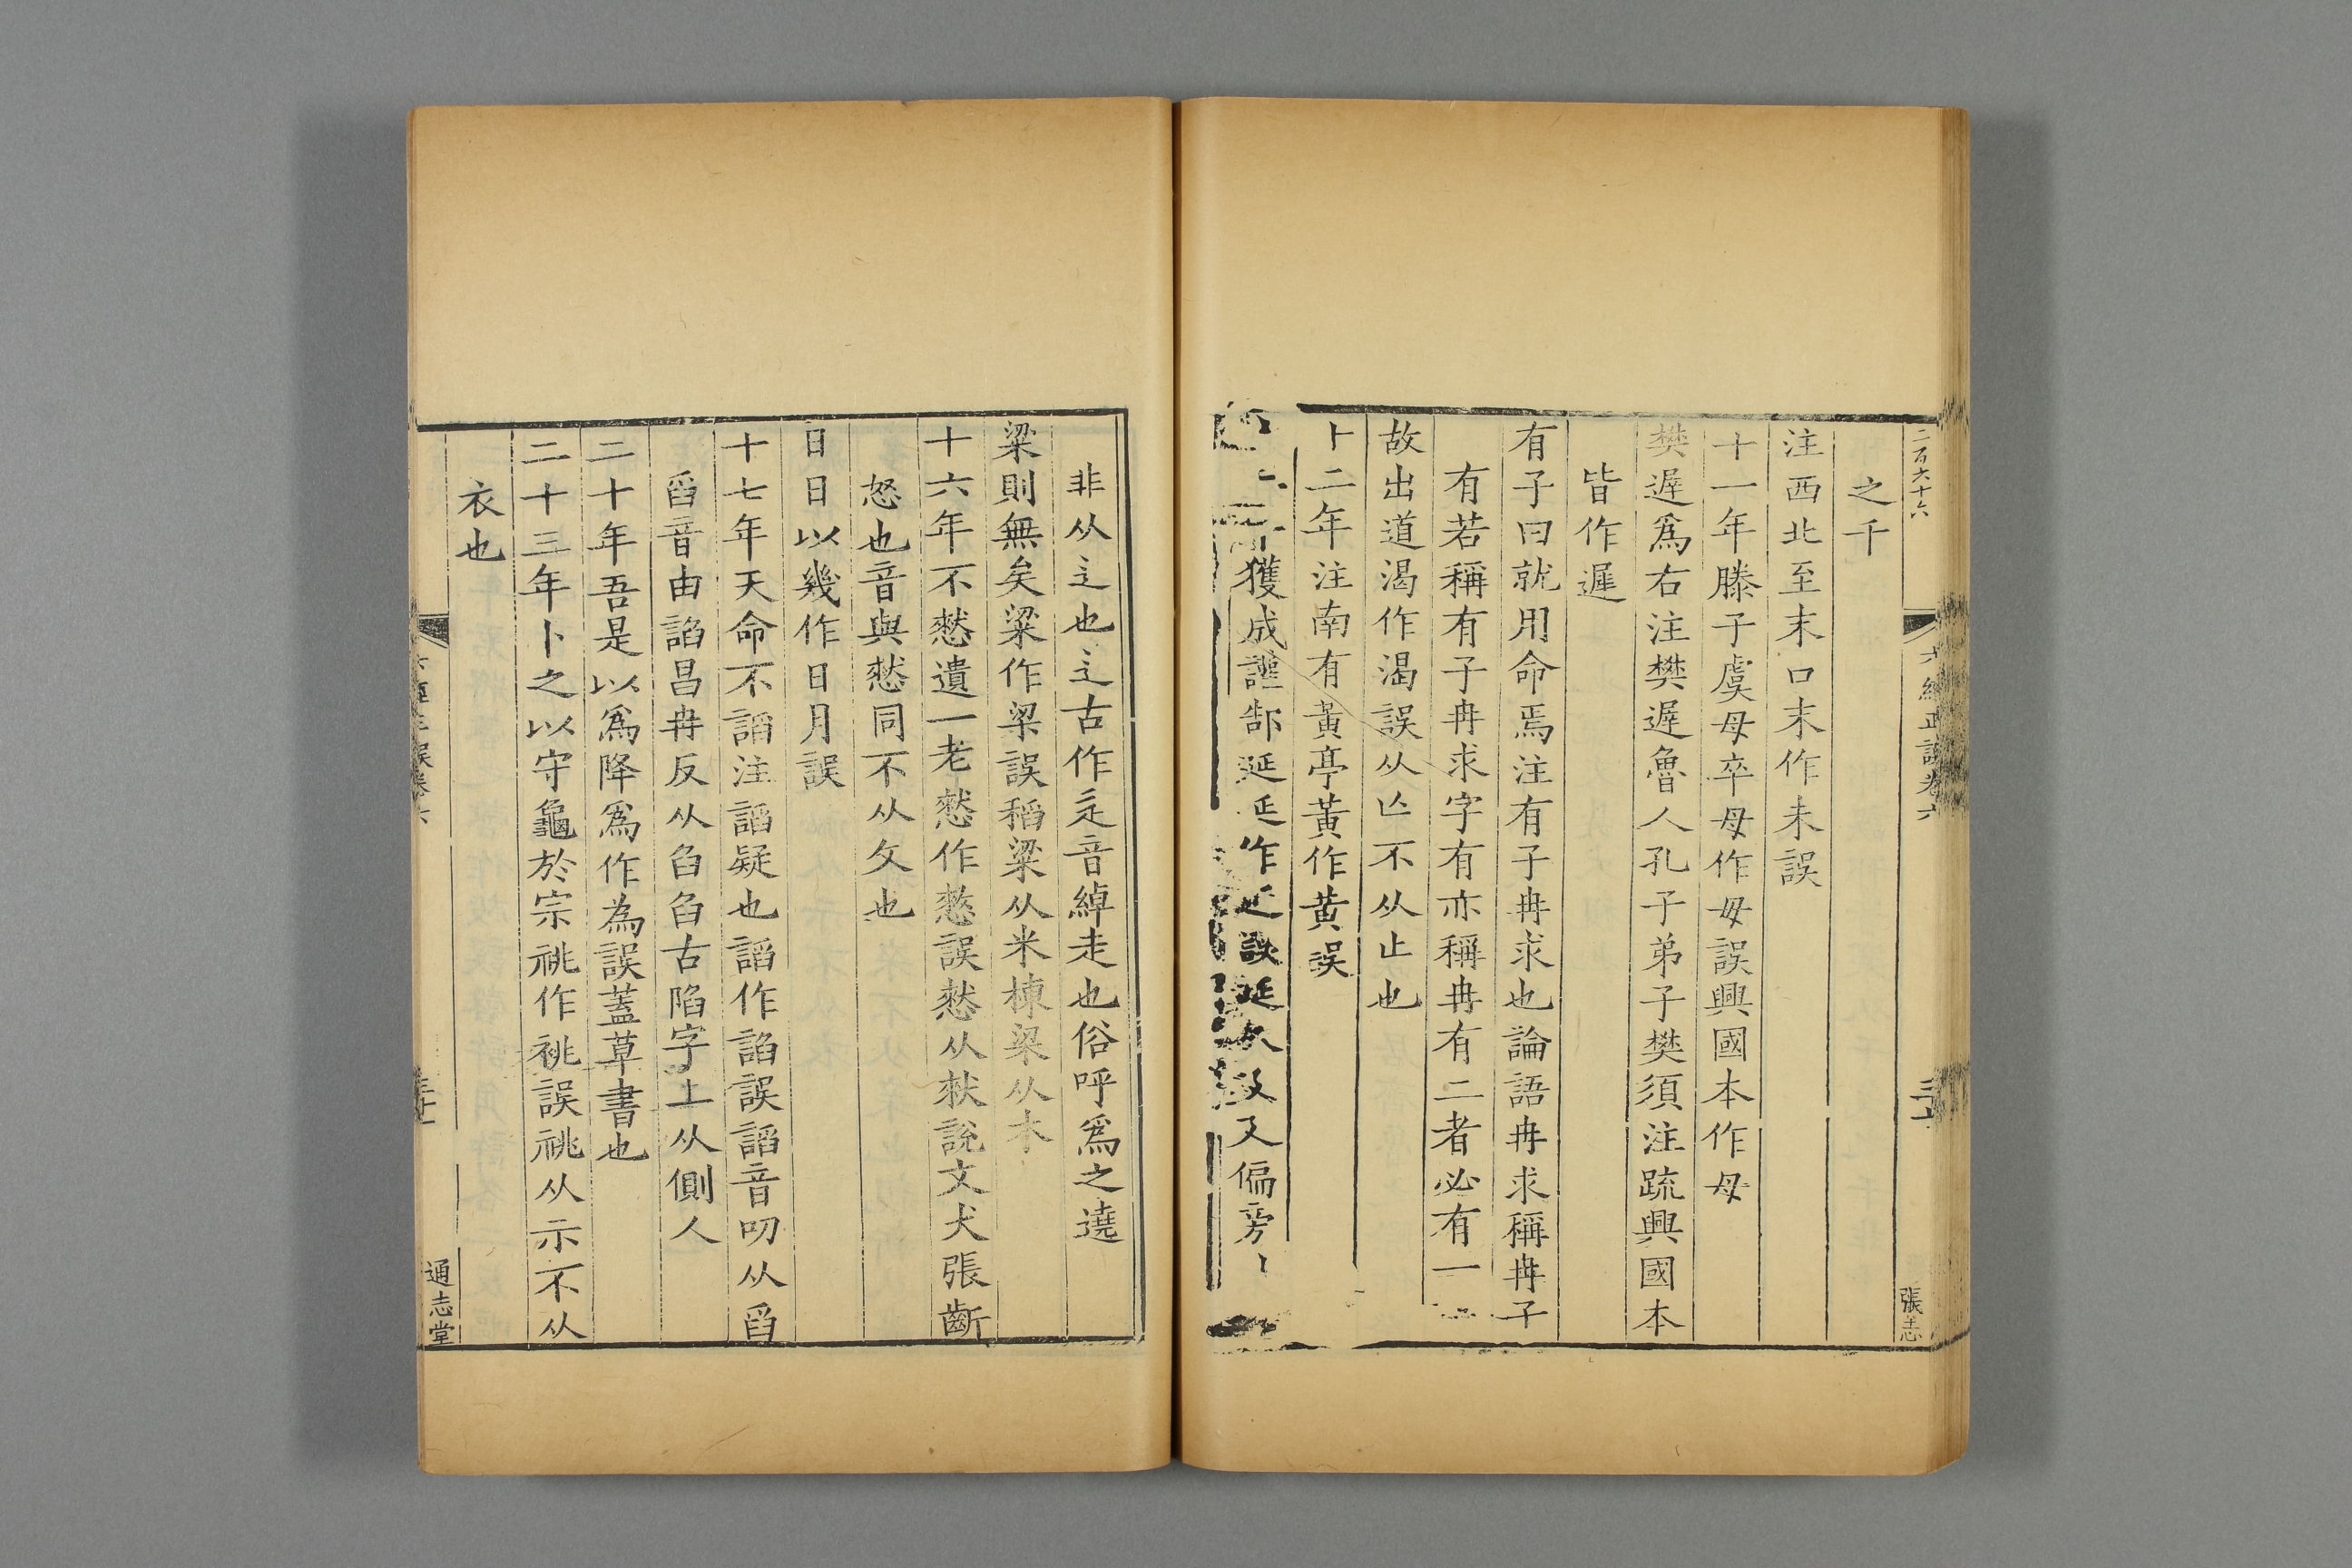 二百六十六
六經正誤卷六
張志
之千
注西北至末口末作未誤
十一年滕子虞母卒母作毋誤興國本作母
樊遲爲右注樊遲魯人孔子弟子樊須注疏興國本
皆作遲
有子曰就用命焉注有子冉求也論語冉求稱冉子
有若稱有子冉求字有亦稱冉有二者必有一
故出道渴作渴誤从亾不从止也
二年注南有黃亭黃作黄誤
獲成讙郚延延作延誤延 又偏旁
非从辶也辶古作辵音綽走也俗呼爲之遶
梁則無矣粱作梁誤稻粱从米棟梁从木
十六年不憖遺一老憖作憗誤憖从猌說文犬張齗
怒也音與憖同不从攵也
日日以幾作日月誤
十七年天命不謟注謟疑也謟作諂誤謟音叨从舀
舀音由諂昌冉反从臽臽古陷字上从側人
二十年吾是以爲降爲作為誤蓋草書也
二十三年卜之以守龜於宗祧作祧誤祧从示不从
衣也
六經正誤卷六
通志堂